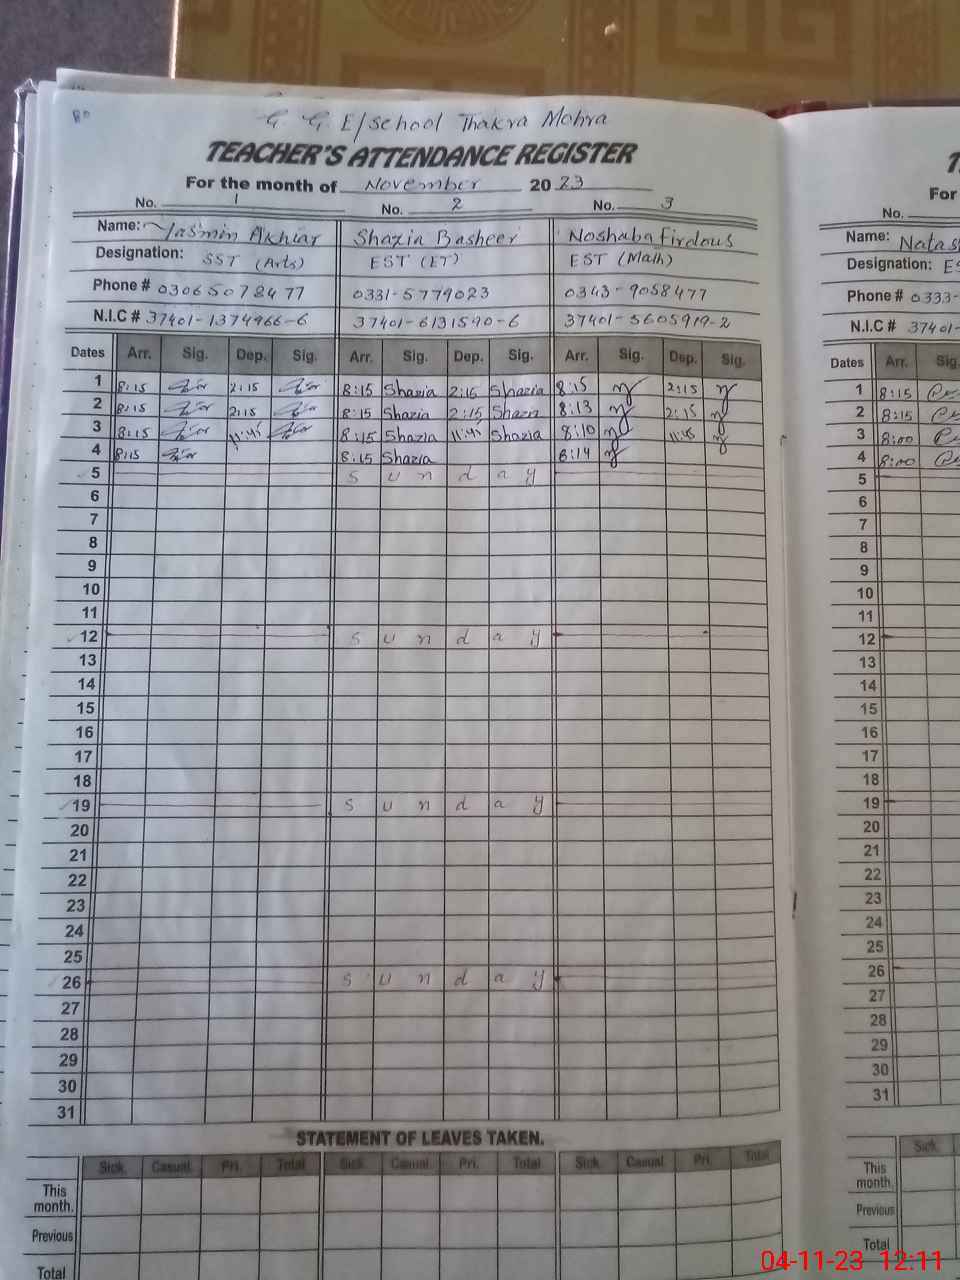 G. G. E/school Thakra Mohra
TEACHER'S ATTENDANCE REGISTER
For the month of November 2023
No. 1 No. 2 No. 3
Name: Yasmin Akhtar Shazia Basheer Noshaba Firdous
Designation: SST (Arts) EST (ET) EST (Math)
Phone # 03065078477 0331-5779023 0343-9058477
N.I.C # 37401-1374966-6 37401-6131590-6 37401-5605919-2
Dates Arr. Sig. Dep. Sig. Arr. Sig. Dep. Sig. Arr. Sig. Dep. Sig.
1 8:15 2:15 8:15 Shazia 2:15 Shazia 8:15 2:15
2 8:15 2:15 8:15 Shazia 2:15 Shazia 8:13 2:15
3 8:15 11:45 8:15 Shazia 11:45 Shazia 8:10 11:45
4 8:15 8:15 Shazia 8:14
5 Sunday
6
7
8
9
10
11
12 Sunday
13
14
15
16
17
18
19 Sunday
20
21
22
23
24
25
26 Sunday
27
28
29
30
31
STATEMENT OF LEAVES TAKEN.
Sick Casual Pri. Total Sick Casual Pri. Total Sick Casual Pri. Total
This month.
Previous
Total
For
No.
Name: Natas
Designation: ES
Phone # 0333-
N.I.C # 37401-
Dates Arr. Sig.
1 8:15
2 8:15
3 8:00
4 8:00
5
6
7
8
9
10
11
12
13
14
15
16
17
18
19
20
21
22
23
24
25
26
27
28
29
30
31
Sick
This month.
Previous
Total
04-11-23 12:11